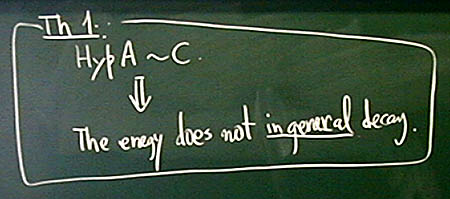 Th 1:
Hyp A ~ C.
⇓
The enegy does not in general decay.